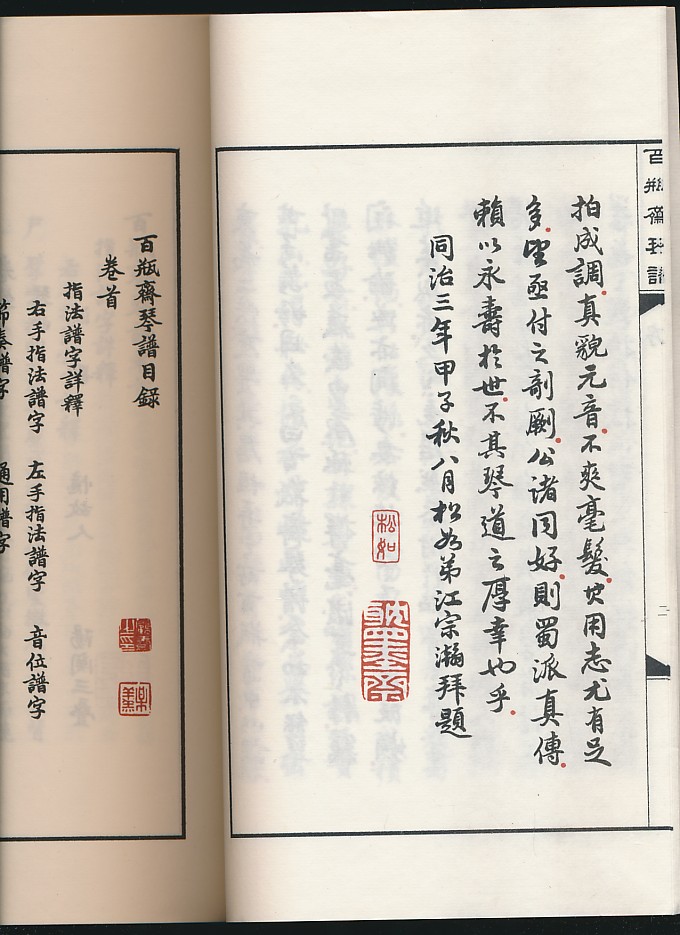 百瓶齋琴譜
二
拍成調真貌元音不爽毫髮其用志尤有足
多望亟付之剞劂公諸同好則蜀派真傳
賴以永壽於世不其琴道之厚幸也乎
同治三年甲子秋八月松如弟江宗瀚拜題
松如
百瓶齋琴譜目錄
卷首
指法譜字詳釋
右手指法譜字 左手指法譜字 音位譜字
節奏譜字 通用譜字